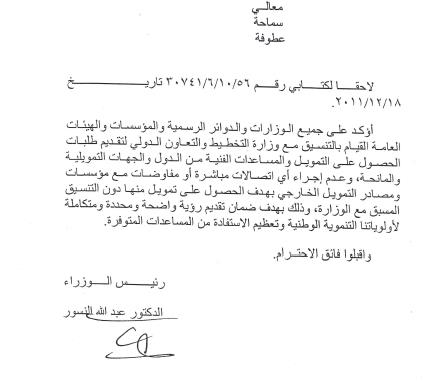 معالي
سماحة
عطوفة
لاحقا لكتابي رقم ٣٠٧٤١/٦/١٠/٥٦ تاريخ
٢٠١١/١٢/١٨.
أؤكد على جميع الوزارات والدوائر الرسمية والمؤسسات والهيئات
العامة القيام بالتنسيق مع وزارة التخطيط والتعاون الدولي لتقديم طلبات
الحصول على التمويل والمساعدات الفنية من الدول والجهات التمويلية
والمانحة، وعدم إجراء أي اتصالات مباشرة أو مفاوضات مع مؤسسات
ومصادر التمويل الخارجي بهدف الحصول على تمويل منها دون التنسيق
المسبق مع الوزارة، وذلك بهدف ضمان تقديم رؤية واضحة ومحددة ومتكاملة
لأولوياتنا التنموية الوطنية وتعظيم الاستفادة من المساعدات المتوفرة.
واقبلوا فائق الاحترام.
رئيس الوزراء
الدكتور عبد الله النسور